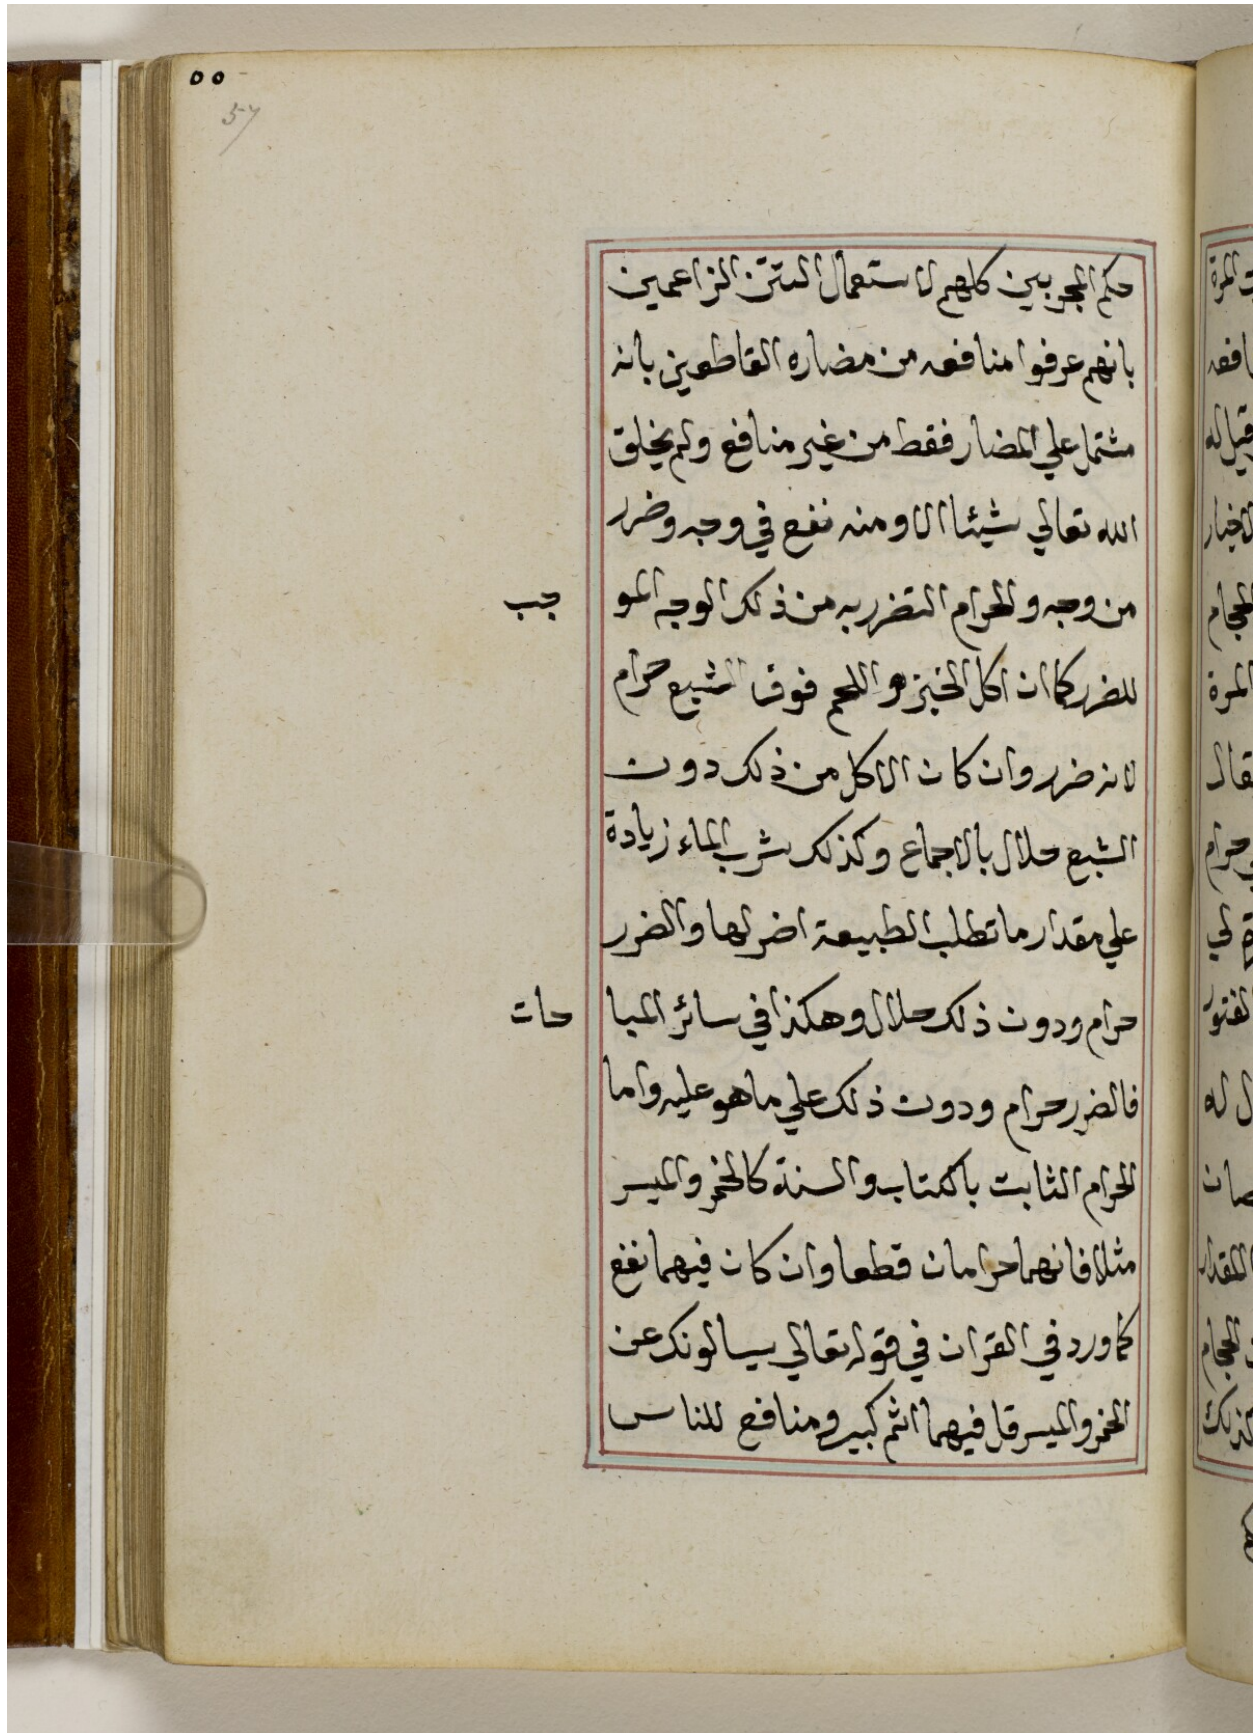 ٥٥
57
حكم المجربين كلهم لاستعمال التتن الزاعمين
بانهم عرفوا منافعه من مضاره القاطعين بانه
مشتمل علي المضار فقط من غير منافع ولم يخلق
الله تعالي شيئا الا ومنه نفع في وجه وضرر
من وجه والحرام التضرر به من ذلك الوجه الموجب
للضرر كما ان اكل الخبز واللحم فوق الشبع حرام
لانه ضرر وان كان الاكل من ذلك دون
الشبع حلال بالاجماع وكذلك شرب الماء زيادة
علي مقدار ما تطلب الطبيعة اضر لها والضرر
حرام ودون ذلك حلال وهكذا في سائر المباحات
فالضرر حرام ودون ذلك علي ما هو عليه واما
الحرام الثابت بالكتاب والسنة كالخمر والميسر
مثلا فانهما حرامان قطعا وان كان فيهما نفع
كما ورد في القران في قوله تعالي يسالونك عن
الخمر والميسر قل فيهما اثم كبير ومنافع للناس